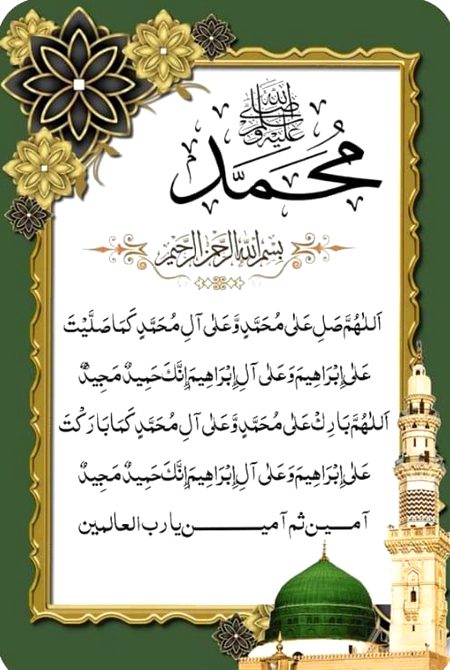 صلى الله عليه وسلم
مُحَمَّد
بسم الله الرحمن الرحيم
اَللهُمَّ صَلِ عَلىٰ مُحَمَّدٍ وَّعَلىٰ آلِ مُحَمَّدٍ كَمَا صَلَّيْتَ
عَلىٰ إِبْرَاهِيمَ وَعَلىٰ آلِ إِبْرَاهِيمَ إِنَّكَ حَمِيدٌ مَجِيدٌ
اَللهُمَّ بَارِكْ عَلىٰ مُحَمَّدٍ وَّعَلىٰ آلِ مُحَمَّدٍ كَمَا بَارَكْتَ
عَلىٰ إِبْرَاهِيمَ وَعَلىٰ آلِ إِبْرَاهِيمَ إِنَّكَ حَمِيدٌ مَجِيدٌ
آمـــين ثم آميـــــــــن يا رب العالمين